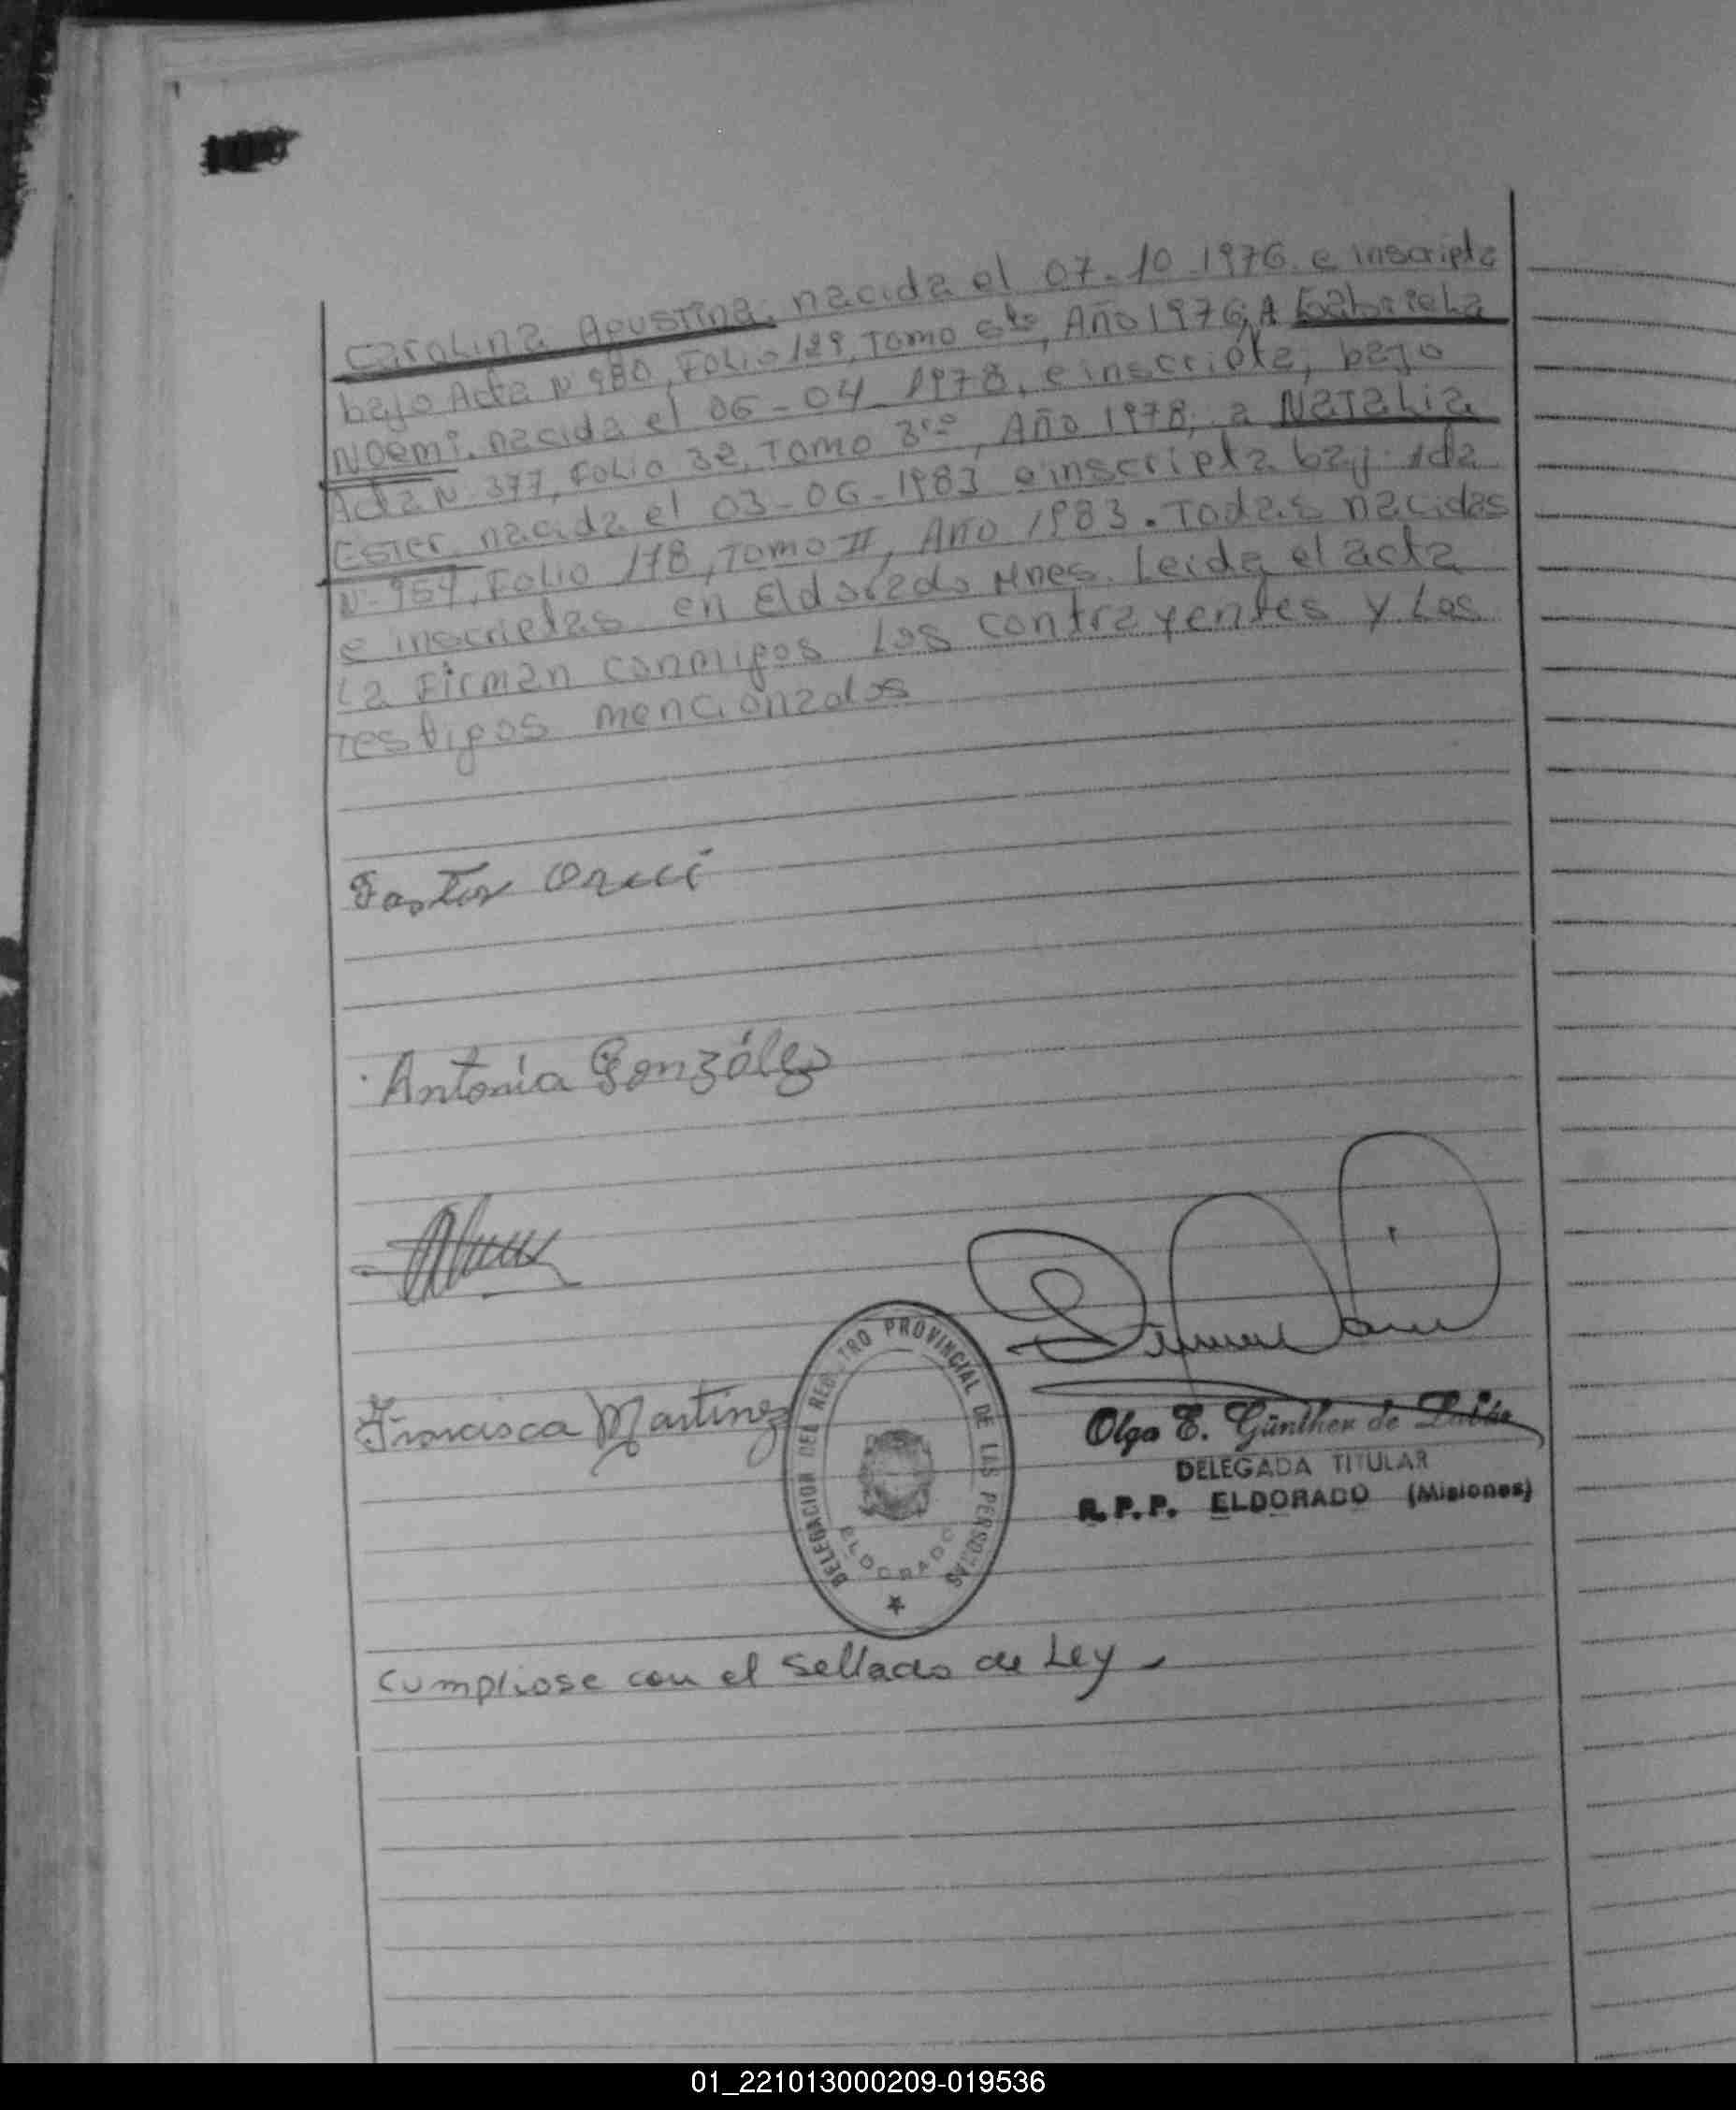 Carolina Agustina, nacida el 07-10-1976. e inscripta
bajo Acta Nº 980, Folio 129, Tomo 6to, Año 1976, A Gabriela
Noemi, nacida el 06-04-1978, e inscripta, bajo
Acta Nº 377, Folio 32, Tomo 3ro, Año 1978, a Natalia
Ester nacida el 03-06-1983 e inscripta bajo Acta
Nº 954, Folio 178, Tomo II, Año 1983. Todas nacidas
e inscriptas en Eldorado Mnes. Leida el acta
la Firman conmigos los contrayentes y los
testigos mencionados
Pastor
Antonia González
Francisca Martinez
DELEGACION DEL REGISTRO PROVINCIAL DE LAS PERSONAS
ELDORADO
Olga E. Günther de
DELEGADA TITULAR
R.P.P. ELDORADO (Misiones)
Cumpliose con el sellado de Ley.
01_221013000209-019536